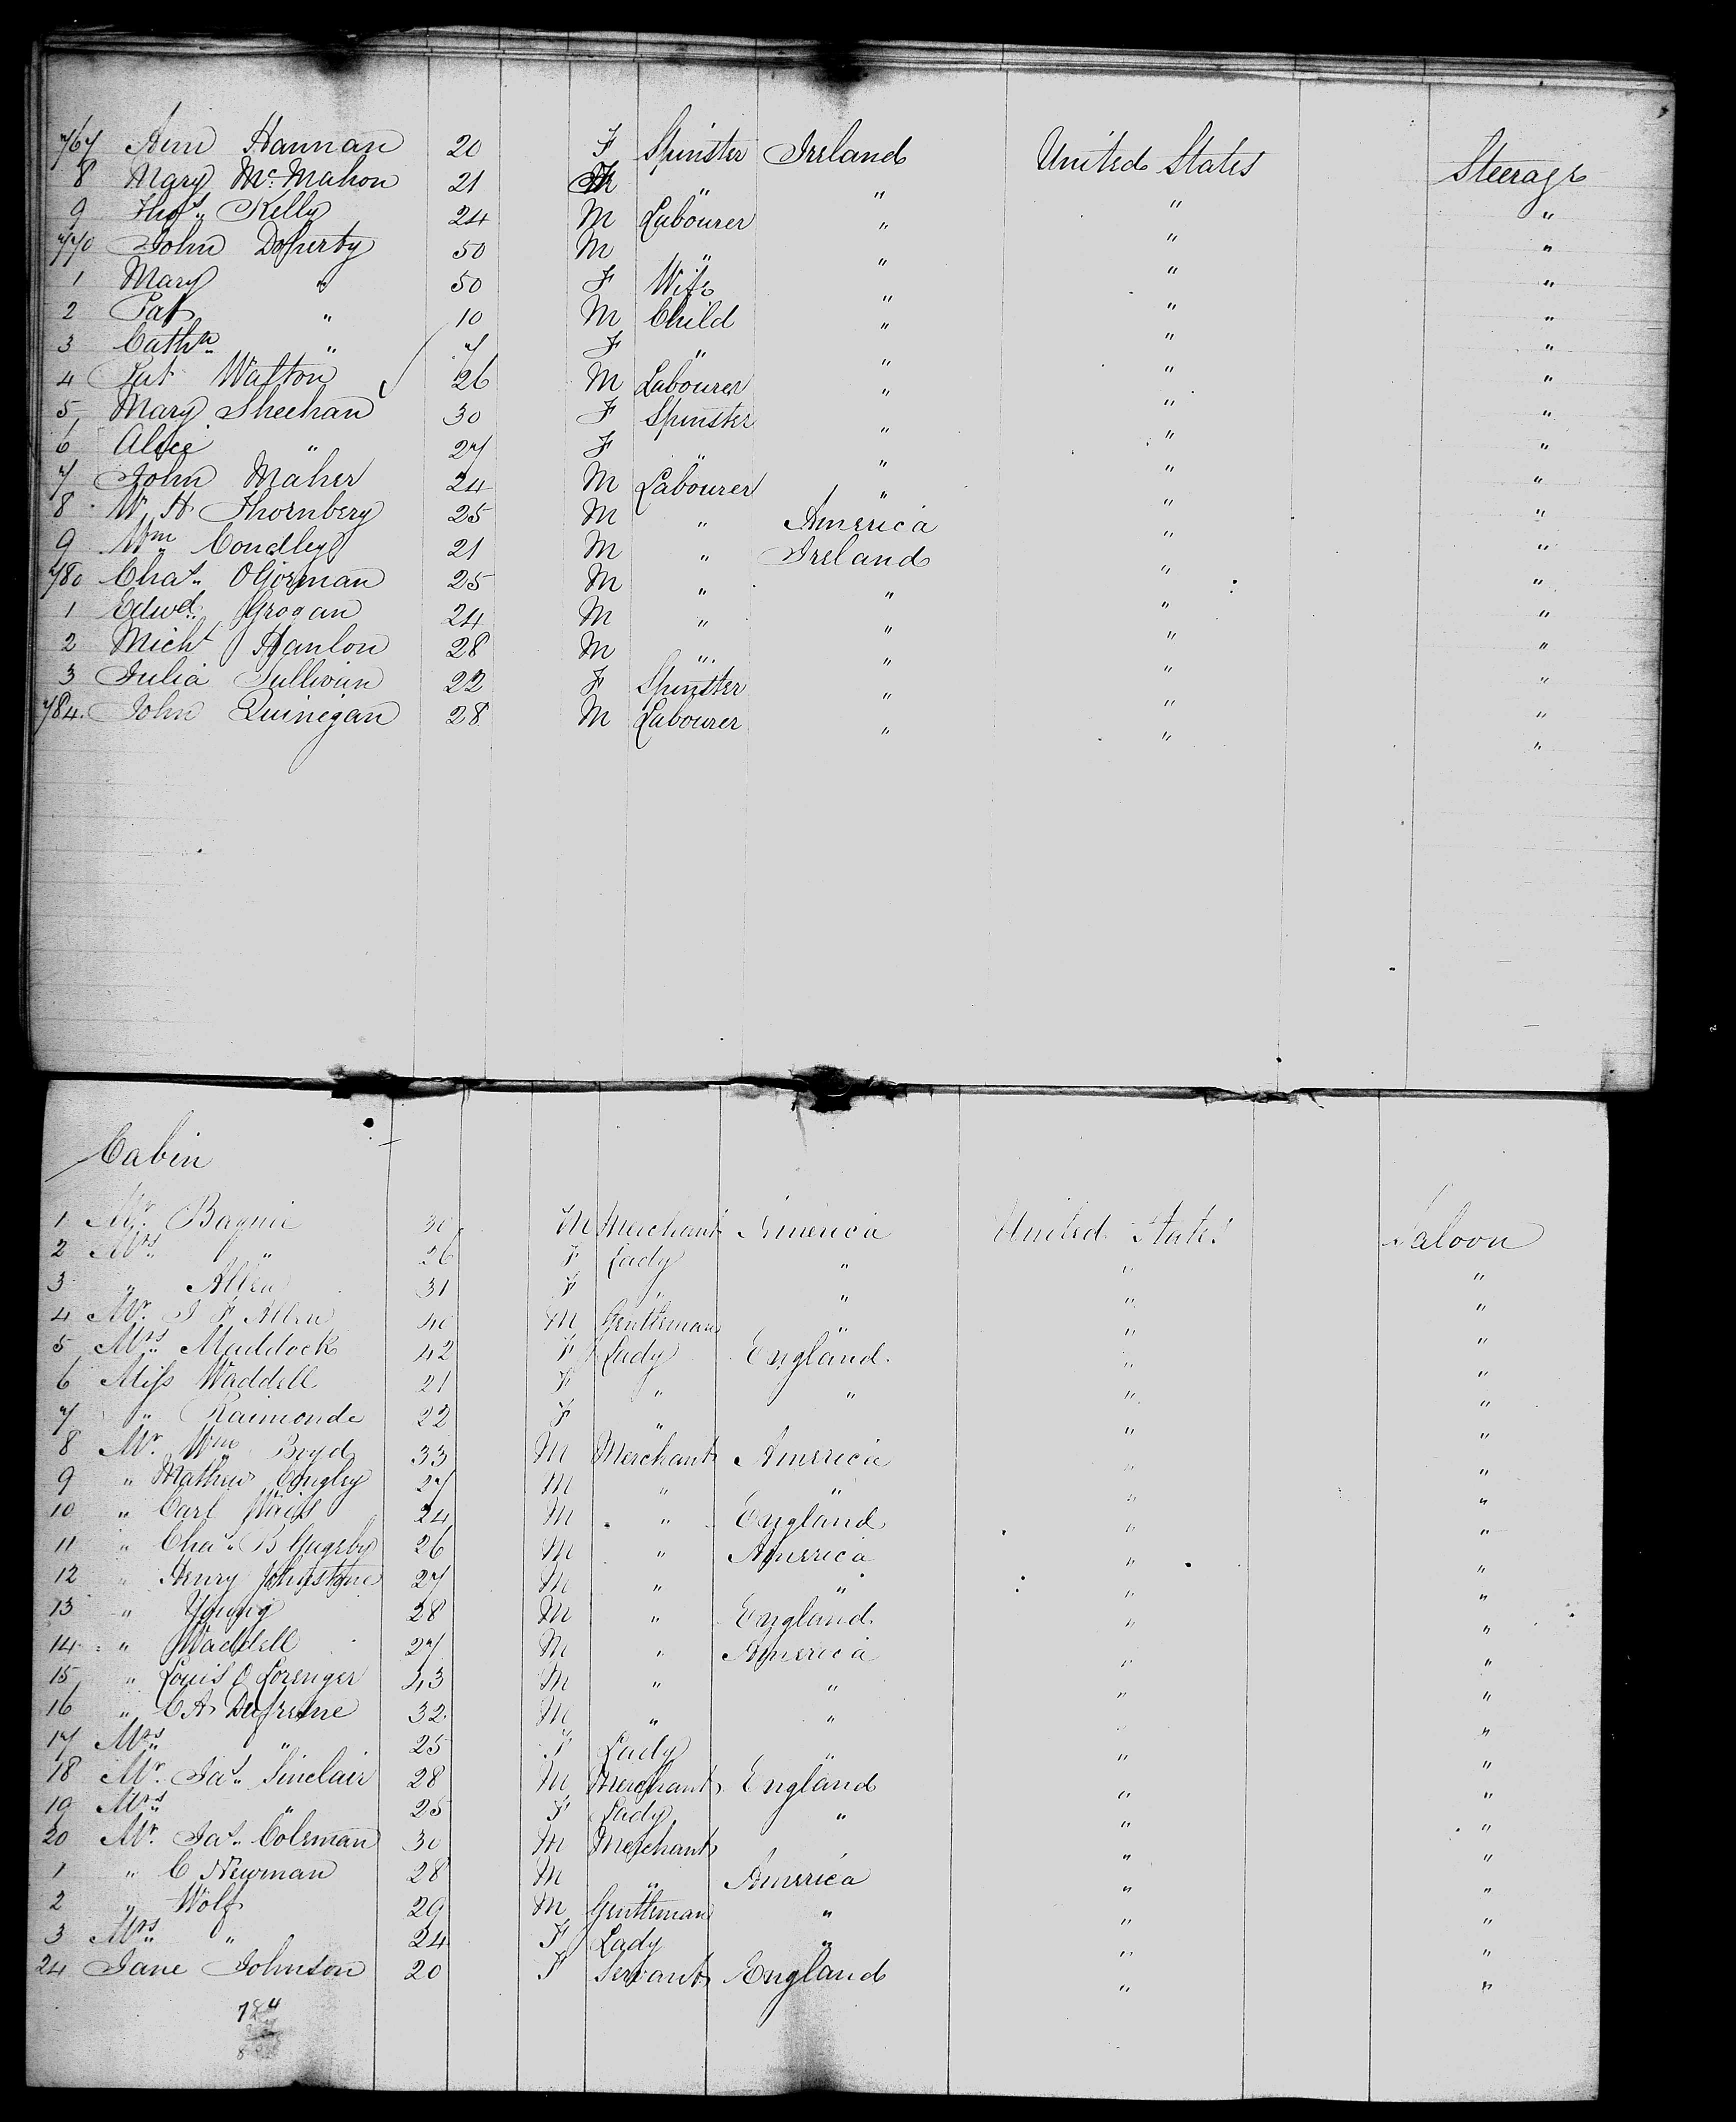 767 Ann Hannan 20 F Spinster Ireland United States Steerage
8 Mary McMahon 21 " " " "
9 Thos. Kelly 24 M Labourer " " "
770 John Doherty 50 M " " " "
1 Mary " 50 F Wife " " "
2 Pat " 10 M Child " " "
3 Cathn " 7 F " " " "
4 Pat Walton 26 M Labourer " " "
5 Mary Sheehan 30 F Spinster " " "
6 Alice " 27 F " " " "
7 John Maher 24 M Labourer " " "
8 W. H. Thornbery 25 M " America " "
9 Wm Condley 21 M " Ireland " "
780 Chas. OGorman 25 M " " " "
1 Edwd. Grogan 24 M " " " "
2 Michl Hanlon 28 M " " " "
3 Julia Sullivan 22 F Spinster " " "
784. John Quinegan 28 M Labourer " " "
Cabin
1 Mr. 30 M Merchant America United States Saloon
2 Mrs. " 26 F Lady " " "
3 " Allen 31 F " " " "
4 Mr. J F Allen 40 M Gentleman " " "
5 Mrs. Maddock 42 F Lady England. " "
6 Miss Waddell 21 F " " " "
7 " Raimonde 22 F " " "
8 Mr. Wm Boyd 33 M Merchant America " "
9 " Mathew 27 M " " " "
10 " Carl 24 M " England " "
11 " Chas. B 26 M " America " "
12 " Henry Johnstone 27 M " " " "
13 " Young 28 M " England " "
14 " Waddell 27 M " America " "
15 " Louis O Lorenger 43 M " " " "
16 " C A Dufresne 32 M " " " "
17 Mrs. " 25 F Lady " " "
18 Mr. Jas. Sinclair 28 M Merchant England " "
19 Mrs. " 25 F Lady " " "
20 Mr. Jas. Coleman 30 M Merchant " " "
1 " C Newman 28 M " America " "
2 " Wolf 29 M Gentleman " " "
3 Mrs. " 24 F Lady " " "
24 Jane Johnson 20 F Servant England " "
784